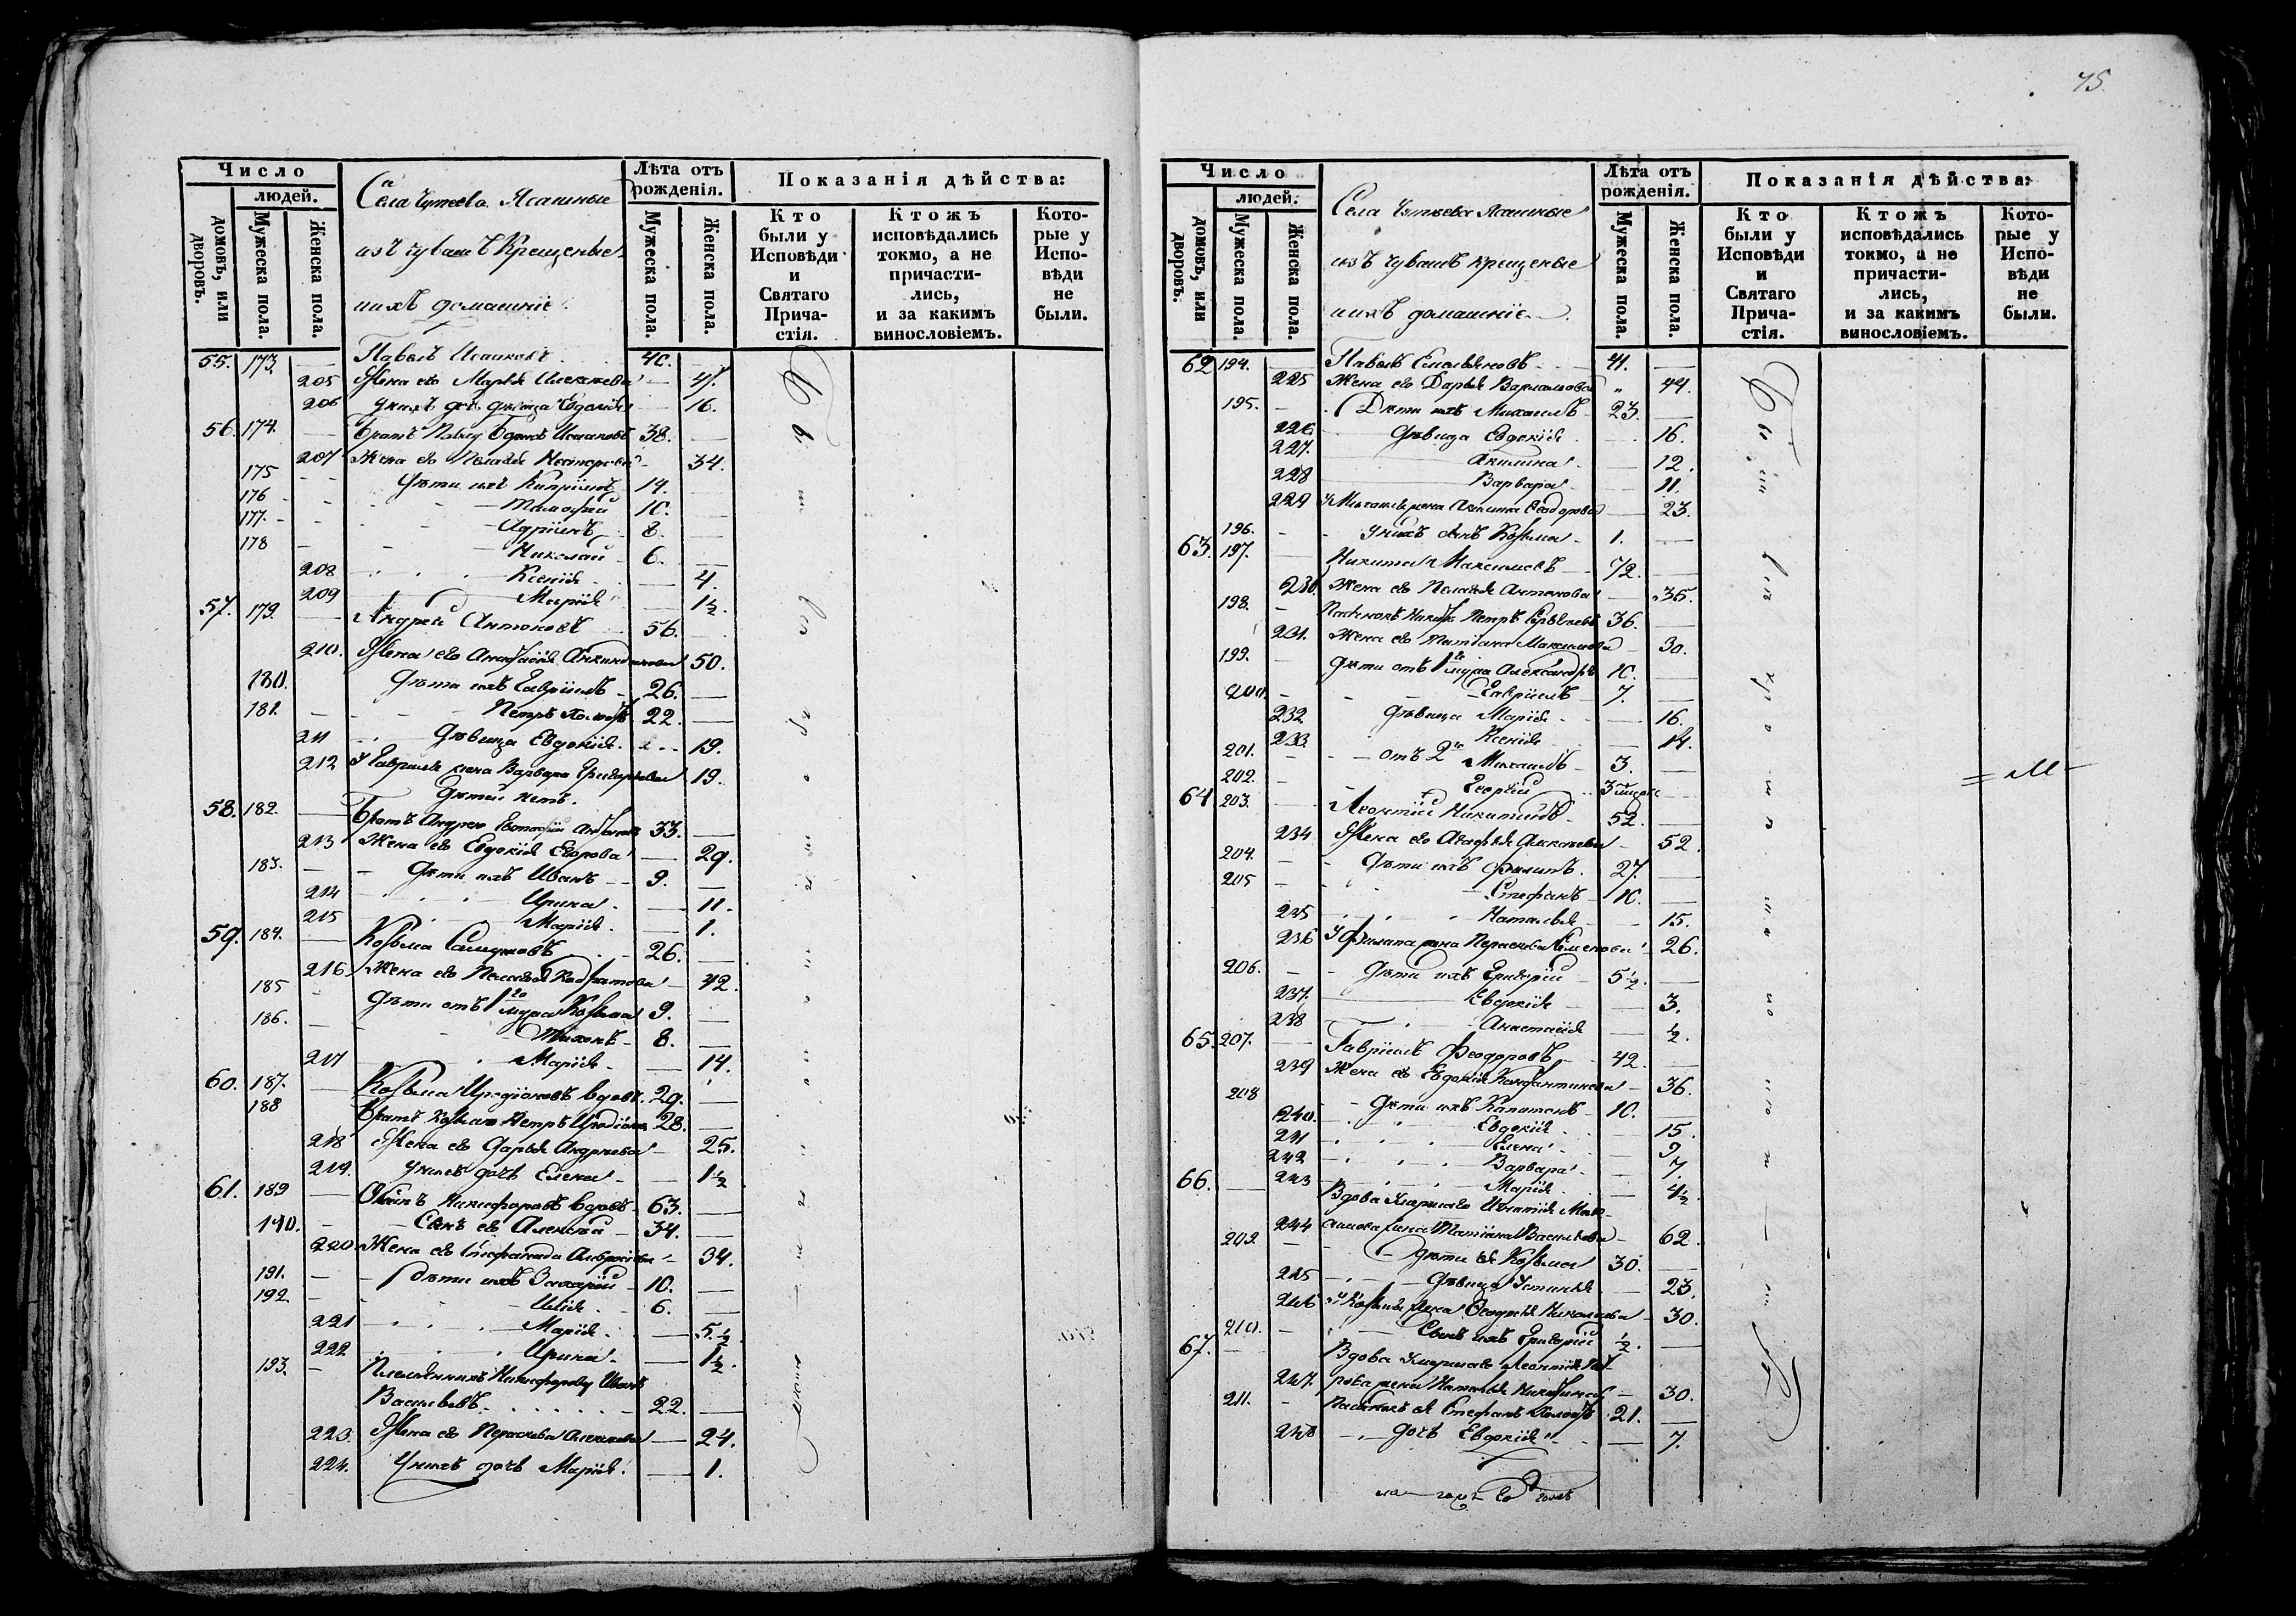 Число
людей.
домовъ, или дворовъ.
Мужеска пола.
Женска пола.
Села Чутеева Ясашные
изъ чувашъ Крещеные
и ихъ домашніе.
Лѣта отъ рожденія.
Мужеска пола.
Женска пола.
Показанія дѣйства:
Кто были у Исповѣди и Святаго Причастія.
Ктожъ исповѣдались токмо, а не причастились, и за какимъ винословіемъ.
Которые у Исповѣди не были.
55. 173. Павелъ Исааковъ 40.
205 Жена его Марья Алексѣева 47.
206 у нихъ дочь дѣвица Евдокія 16.
56. 174. Братъ Павлу Исааковъ 38.
207 Жена его Пелагія Несторова 34.
175 Дѣти ихъ Кипріянъ 14.
176 Тимофей 10.
177. Адріянъ 8.
178 Николай 6.
208 Ксенія 4.
209 Марія 1½.
57. 179. Андрей Антоновъ 56.
210. Жена его Анастасія 50.
180. Дѣти ихъ Гавріилъ 26.
181. Петръ холостъ 22.
211 Дѣвица Евдокія 19.
212 У Гавріила жена Варвара Григорьева 19.
Дѣтей нетъ.
58. 182. Братъ Андрею Антоновъ 33.
213 Жена его Евдокія Егорова 29.
183. Дѣти ихъ Иванъ 9.
214 Ирина 11.
215 Марія 1.
59. 184. Козьма Самуиловъ 26.
216. Жена его Пелагія 42.
185 Дѣти отъ 1го мужа Козьма 9.
186. Тихонъ 8.
217 Марія 14.
60. 187. Козьма Иродіоновъ вдовъ 29.
188 Братъ Козьмы Петръ Иродіоновъ 28.
218 Жена его Дарья Андреева 25.
219. У нихъ дочь Елена 1½
61. 189 Никифоровъ вдовъ 63.
190. Сынъ его Алексѣй 34.
220. Жена его Стефанида Амвросіева 34.
191. Дѣти ихъ Захарій 10.
192. Илія 6.
221 Марія 5½
222 Ирина 1½.
193. Племянникъ Никифорову Иванъ
Васильевъ 22.
223. Жена его Параскева Алексѣева 24.
224. У нихъ дочь Марія 1.
75.
Число
людей.
домовъ, или дворовъ.
Мужеска пола
Женска пола.
Села Чутеева Ясашные
изъ чувашъ крещеные
и ихъ домашніе.
Лѣта отъ рожденія.
Мужеска пола.
Женска пола.
Показанія дѣйства:
Кто были у Исповѣди и Святаго Причастія.
Ктожъ исповѣдались токмо, а не причастились, и за какимъ винословіемъ.
Которые у Исповѣди не были.
62 194. Павелъ Емельяновъ 41.
225 Жена его Дарья Варламова 44.
195. Дѣти ихъ Михаилъ 23.
226. Дѣвица Евдокія 16.
227. Акилина 12.
228 Варвара 11.
229 У Михаила жена Феодорова 23.
196. У нихъ сынъ Козьма 1.
63. 197. Никита Максимовъ 72.
230. Жена его Пелагія Антонова 35.
198. Пасынокъ Никиты Петръ 36.
231. Жена его Татіана Максимова 30.
199. Дѣти отъ 1го мужа Александръ 10.
200. Гавріилъ 7.
232 Дѣвица Марія 16.
233. Ксенія 14.
201. отъ 2го Михаилъ 3.
202. Георгій 3
64 203. Леонтій Никитинъ 52.
234. Жена его Агафья Алексѣева 52.
204. Дѣти ихъ Филипъ 27.
205 Стефанъ 10.
235 Наталья 15.
236 У Филипа жена Параскева Семенова 26.
206. Дѣти ихъ Григорій 5½
237. Евдокія 3.
238 Анастасія ½.
65. 207. Гавріилъ Феодоровъ 42.
239 Жена его Евдокія Константинова 36.
208 Дѣти ихъ Капитонъ 10.
240. Евдокія 15.
241 Елена 9
242 Варвара 7
243 Марія 4½.
66. Вдова умершаго Игнатія Мак-
244 симова жена Татіана Васильева 62.
209. Дѣти ея Козьма 30.
245 Дѣвица Устинья 23.
246 У Козьмы жена Феодосья Николаева 30.
210. Сынъ ихъ Григорій ½
67. Вдова умершаго Леонтія
247. жена Наталья 30.
211. Пасынокъ ея Стефанъ холостъ 21.
248 дочь Евдокія 7.